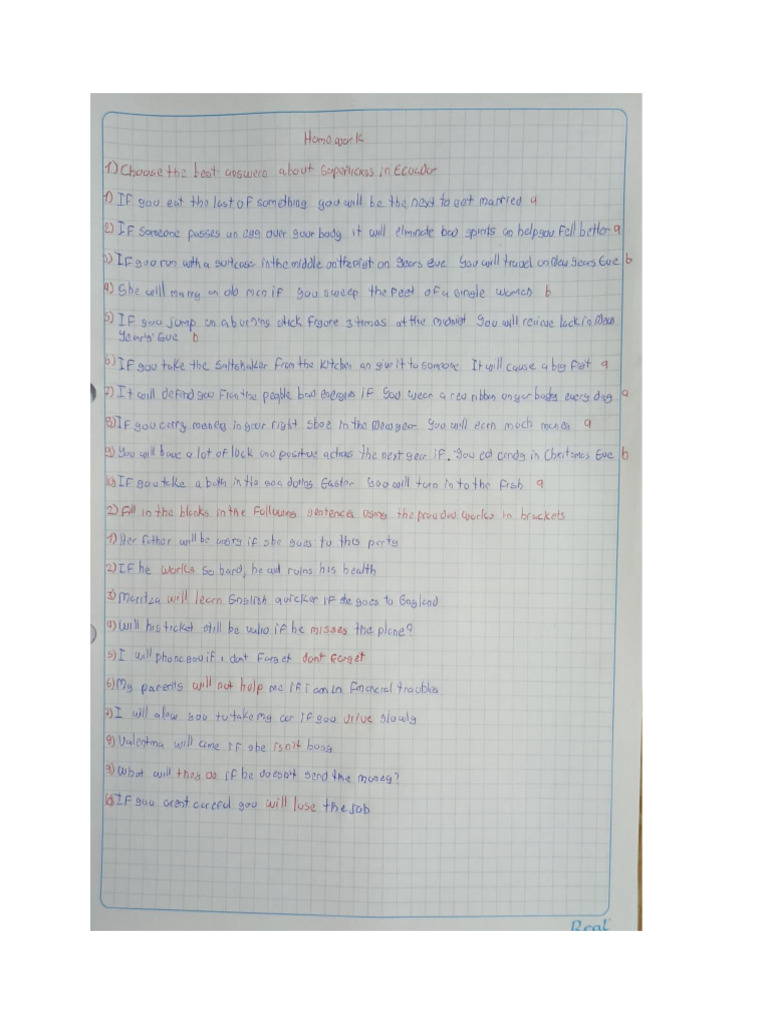 Homework
1) Choose the best answers about Superticions in Ecuador
1) IF you eat the last of something you will be the next to get married a
2) IF someone passes an egg over your body it will eliminate bad spirits an help you Fell better a
3) IF you run with a suitcase in the middle on the on years eve You will travel on New years Eve b
4) She will marry an old men if you sweep the feet of a single women b
5) IF you jump on a burning stick figure 3 times at the midnit You will recive luck in New
Years' Eve b
6) IF you take the Saltshaker From the kitchen an giv it to someone It will cause a big Feit a
7) It will defind you From the people bad energies IF you wear a red ribbon on your body every day a
8) IF you carry money in your right shoe in the New year You will earn much money a
9) You will have a lot of luck and positive across the next year IF. You eat candy in Chritsmas Eve b
10) IF you take a bath in the sea during Easter You will turn in to the Fish a
2) Fill in the blanks in the Following sentences using the provided works in brackets
1) Her father will be worry if she goes to this party
2) IF he works so hard, he will ruins his health
3) Maritza will learn English quicker IF she goes to England
4) Will his ticket still be valid if he misses the plane?
5) I will phone you if i dont Forget dont forget
6) My parents will not help me if i am in Financial troubles
7) I will allow you to take my car if you drive slowly
8) Valentina will come IF she isn't busy
9) What will they do if he doesn't send the money?
10) IF you arent careful you will lose the job
Real